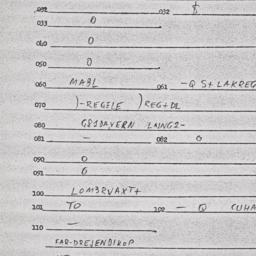 032 032
033 0
040 0
050 0
060 MABL 061 -Q S+LAKREG
070 )-REGELE )REG+DL
080 G81DAVERN LAING2-
081 - 082 0
090 0
091 0
100 LOMBRVAXT+
101 TO 102 - Q CUHA
110 -
FAR-DRELENDIROP